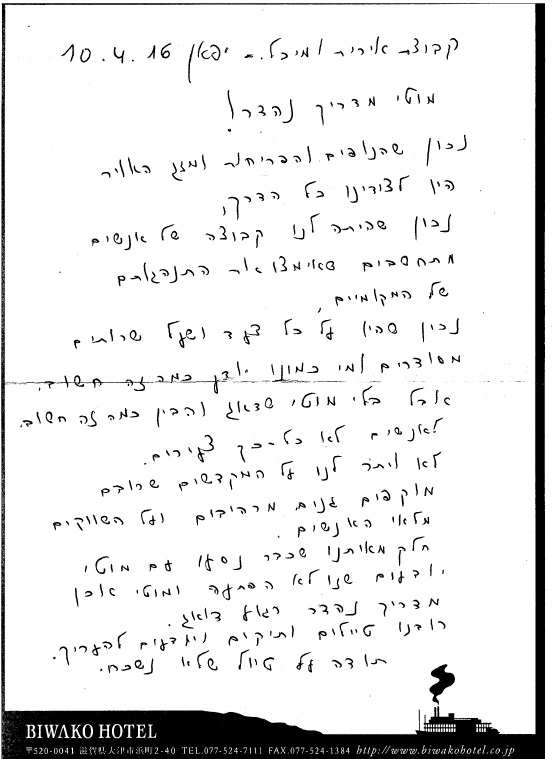 קבוצת אירית ומיכל - יפאן 10.4.16
מוטי מדריך נהדר!
נכון שהנופים והפריחות ומזג האויר
היו לצידינו כל הדרך,
נכון שהיתה לנו קבוצה של אנשים
מתחשבים שאימצו את התנהגותם
של המקומיים,
נכון שהיו על כל צעד ושעל שרותים
מסודרים ומי כמונו יודע כמה זה חשוב.
אבל בלי מוטי שדאג והבין כמה זה חשוב.
לאנשים לא כל-כך צעירים.
לא ויתר לנו על המקדשים שרובם
מוקפים גנים מרהיבים ועל השווקים
מלאי האנשים.
חלק מאיתנו שכבר נסעו עם מוטי
יודעים שזו לא הפתעה ומוטי אכן
מדריך נהדר רגוע דואג.
רובנו טיילים ותיקים ויודעים להעריך.
תודה על טיול שלא נשכח.
BIWAKO HOTEL
〒520-0041 滋賀県大津市浜町2-40 TEL.077-524-7111 FAX.077-524-1384 http://www.biwakohotel.co.jp